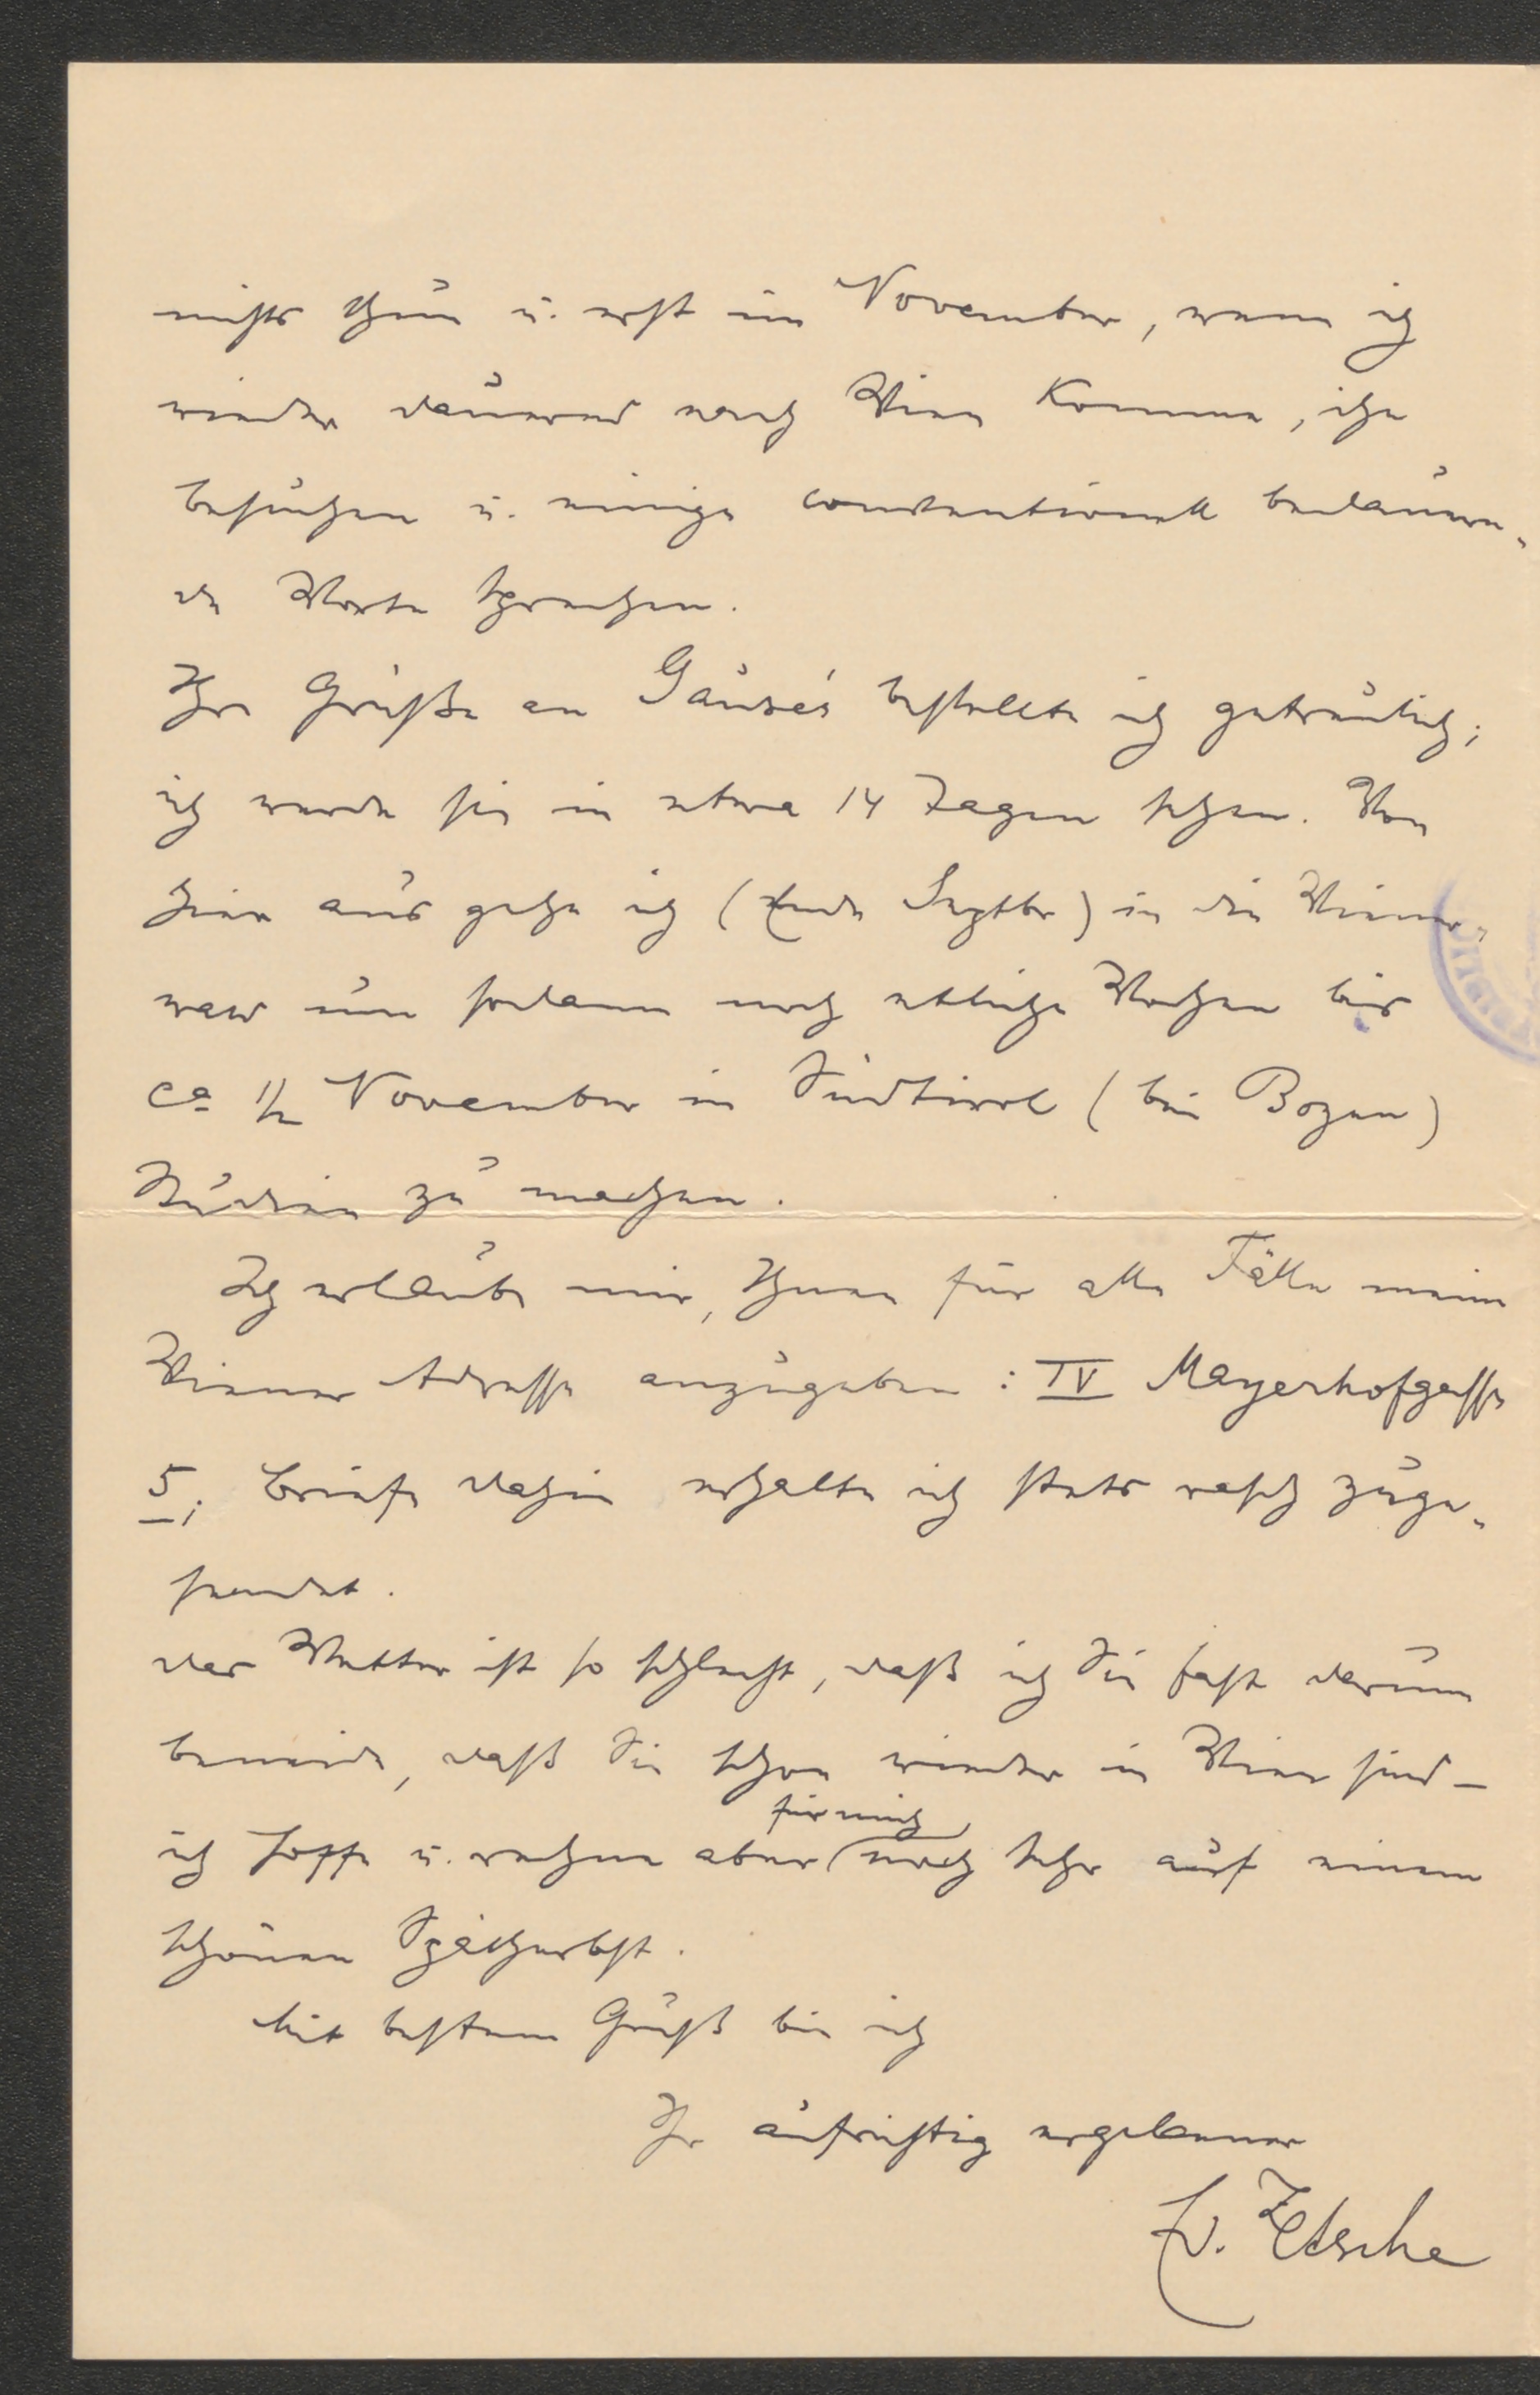 nichts thun u. erst im November, wenn ich
wieder dauernd nach Wien komme, ihn
besuchen u. einige conventionell bedauern-
de Worte sprechen.
Ihre Grüße an Gause's bestellte ich getreulich;
ich werde sie in etwa 14 Tagen sehen. Von
hier aus gehe ich (Ende Septbr) in den Wiener-
wald um sodann noch etliche Wochen bis
ca ½ November in Südtirol (bei Bozen)
Studien zu machen.
Ich erlaube mir, Ihnen für alle Fälle meine
Wiener Adresse anzugeben: IV Mayerhofgasse
5; Briefe dahin erhalte ich stets rasch zuge-
sendet.
das Wetter ist so schlecht, daß ich Sie fast darum
beneide, daß Sie schon wieder in Wien sind –
für mich
ich hoffe u. rechne aber noch sehr auf einen
schönen Spätherbst.
Mit bestem Gruß bin ich
Ihr aufrichtig ergebener
Ed. Zetsche